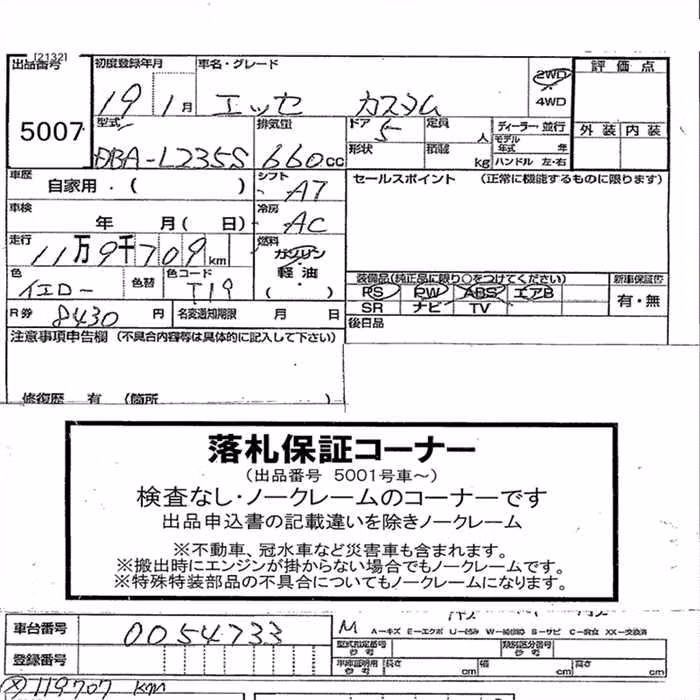 [2132]
出品番号 初度登録年月 車名・グレード 2WD 評価点
5007 19 1月 エッセ カスタム 4WD
型式 排気量 ドア 定員 ディーラー・並行 外装 内装
DBA-L235S 660cc 5 人 モデル年式 年
形状 積載 kg ハンドル 左・右
車歴 自家用・( ) シフト AT セールスポイント (正常に機能するものに限ります)
車検 年 月( 日) 冷房 AC
走行 11万9千709km 燃料 ガソリン・軽油 ( )
色 イエロー 色替 色コード T19 装備品(純正品に限り○をつけてください) 新車保証書
PS PW ABS エアB 有・無
R券 8430円 名変通知期限 月 日 SR ナビ TV
後日品
注意事項申告欄 (不具合内容等は具体的に記入して下さい)
修復歴 有 (箇所
落札保証コーナー
(出品番号 5001号車～)
検査なし・ノークレームのコーナーです
出品申込書の記載違いを除きノークレーム
※不動車、冠水車など災害車も含まれます。
※搬出時にエンジンが掛からない場合でもノークレームです。
※特殊特装部品の不具合についてもノークレームになります。
車台番号 0054733 M A-キズ E-エクボ U-凹み W-補修跡 S-サビ C-腐食 XX-交換済
登録番号 型式指定番号 参考 類別区分番号 参考
車庫証明用 参考 長さ cm 幅 cm 高さ cm
119707 km